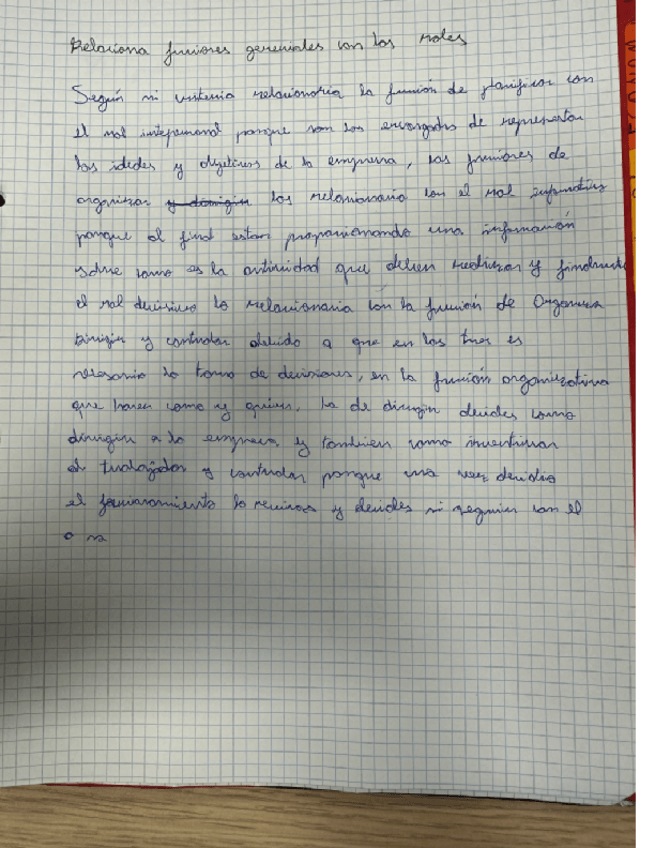 Relaciona funciones gerenciales con los roles
Según mi criterio relacionaria la función de planificar con
el rol interpersonal porque son los encargados de representar
las idedes y objetivos de la empresa, las funiones de
organizar y dirigir las relacionaria con el rol informativo
porque al final estan proporcionando una información
sobre como es la actividad que deben realizar y finalmente
el rol decisivo lo relacionaria con la función de Organizar
Dirigir y controlar debido a que en las tres es
necesario la toma de decisiones, en la función organizativa
que hacen como y quien, La de dirigir decides como
dirigir a la empresa y tambien como incentivar
al trabajador y controlar porque una vez decides
el funcionamiento lo revisas y decides si seguir con el
o no